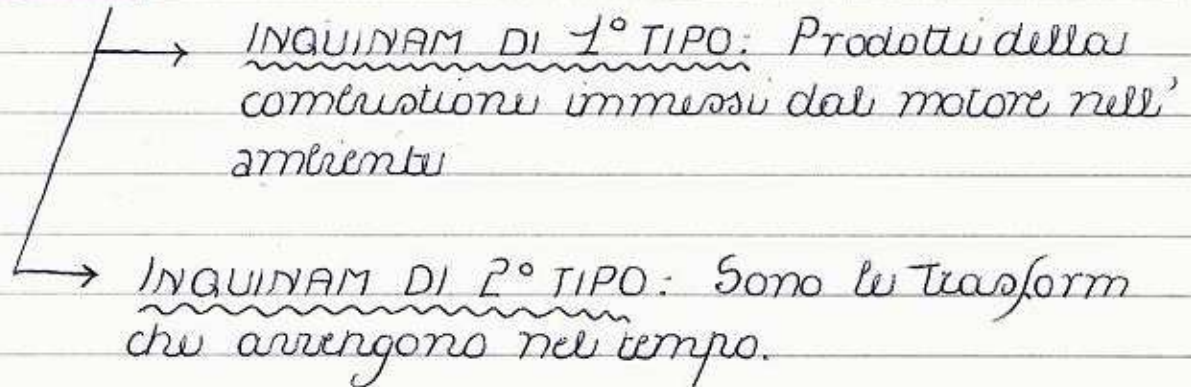 INQUINAM DI 1° TIPO: Prodotti della
combustione immessi dal motore nell'
ambiente
INQUINAM DI 2° TIPO: Sono le Trasform
che avvengono nel tempo.